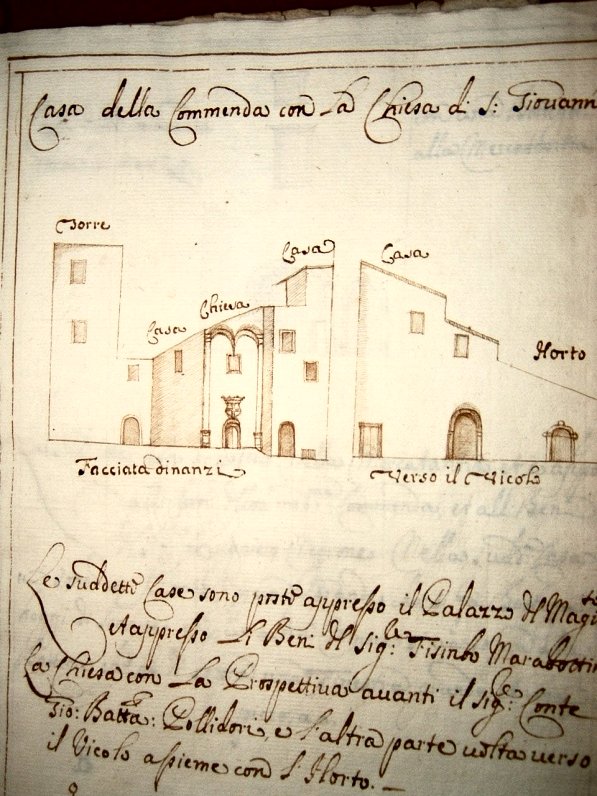 Casa della Commenda con La Chiesa di S: Giovann
Torre
Casa
Chiesa
Casa
Casa
Horto
Facciata dinanzi
Verso il Vicolo
Le suddette Case sono poste appresso il Palazzo del Mag
et appresso Li Beni del Sig: Marabottin
La Chiesa con La Prospettiva avanti il Sig: Conte
Gio: Batta: Pollidori, e l'altra parte volta verso
il Vicolo assieme con l'Horto.